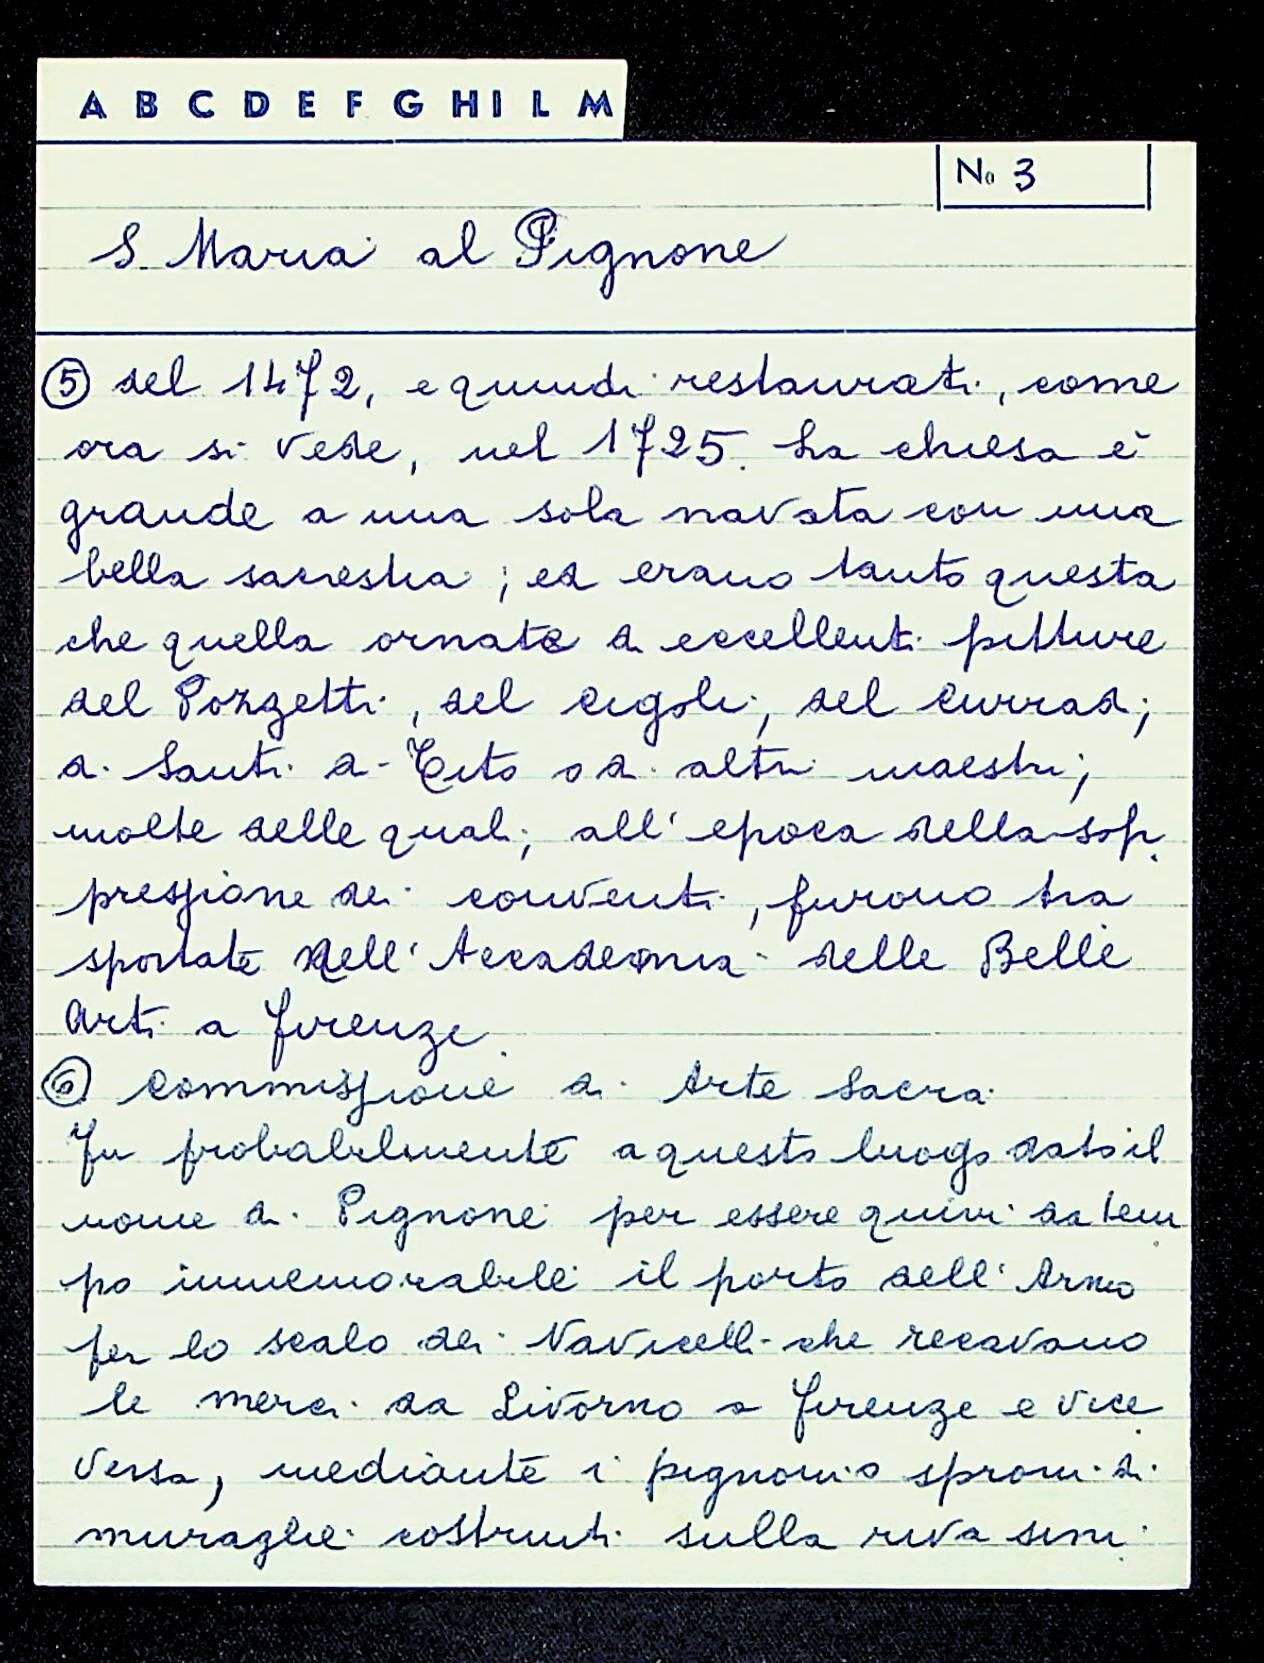 A B C D E F G H I L M
No 3
S. Maria al Pignone
⑤ del 1472, e quindi restaurati, come
ora si vede, nel 1725. La chiesa è
grande a una sola navata con una
bella sacrestia; ed erano tanto questa
che quella ornate di eccellenti pitture
del Pozzetti, del Cigoli, del Curradi,
di Santi di Tito o di altri maestri;
molte delle quali, all'epoca della sop
pressione dei conventi, furono tra
sportate nell'Accademia delle Belle
Arti a Firenze.
⑥ Commissione di Arte Sacra
Fu probabilmente a questo luogo dato il
nome di Pignone per essere quivi da tem
po immemorabile il porto dell'Arno
per lo scalo dei Navicelli che recavano
le merci da Livorno a Firenze e vice
versa, mediante i pignoni o sproni di
muraglie costruiti sulla riva sini